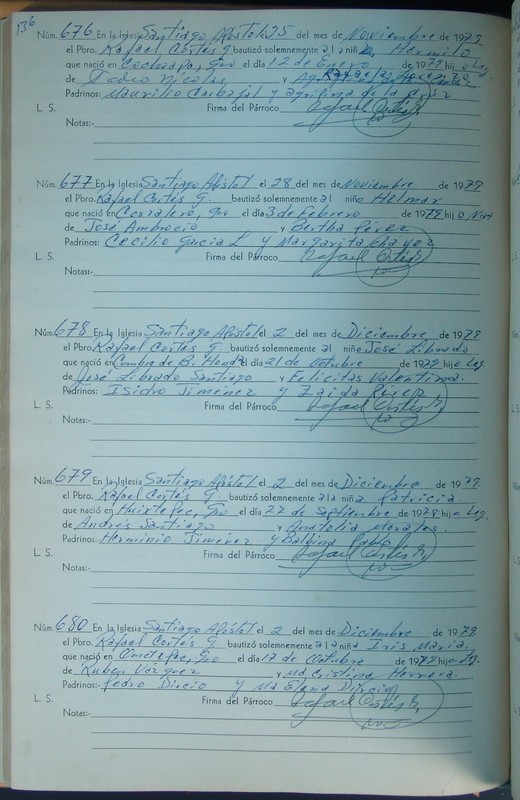 136
Núm. 676 En la Iglesia Santiago Apóstol 25 del mes de Noviembre de 1979
el Pbro. Rafael Cortés G. bautizó solemnemente a l a niñ Hermilo
que nació en Cochoapa, Gro el día 12 de Enero de 1979 hij o Leg.
de Isidro Nicolas y
Padrinos: Maurilio Carbajal y agrifina de la Cruz
L. S. Firma del Párroco Rafael Cortés G.
Notas:-
Núm. 677 En la Iglesia Santiago Apóstol el 28 del mes de Noviembre de 1979
el Pbro. Rafael Cortés G. bautizó solemnemente a l niño Helmar
que nació en Corralero, Gro el día 3 de Febrero de 1979 hij o Nat
de José Ambrocio y Bertha Pérez
Padrinos: Cecilio Garcia L y Margarita Chavez
L. S. Firma del Párroco Rafael Cortés G.
Notas:-
Núm. 678 En la Iglesia Santiago Apóstol el 2 del mes de Diciembre de 1979
el Pbro. Rafael Cortés G. bautizó solemnemente a l niño José Librado
que nació en Cumbre de B. Honda el día 21 de Octubre de 1979 hij o Leg.
de José Librado Santiago y Felicitas Valentina.
Padrinos: Isidro Jiménez y Zaida Rivera
L. S. Firma del Párroco Rafael Cortés G.
Notas:-
Núm. 679 En la Iglesia Santiago Apóstol el 2 del mes de Diciembre de 1979
el Pbro. Rafael Cortés G bautizó solemnemente a la niña Patricia.
que nació en Huixtepec, Gro el día 22 de Septiembre de 1979 hij a Leg.
de Andrés Santiago y Anatolia Morales.
Padrinos: Herminio Jimenez y Balbina Pablo
L. S. Firma del Párroco Rafael Cortés G.
Notas:-
Núm. 680 En la Iglesia Santiago Apóstol el 2 del mes de Diciembre de 1979
el Pbro. Rafael Cortés G. bautizó solemnemente a la niña Iris María.
que nació en Ometepec, Gro el día 17 de Octubre de 1979 hij a Leg.
de Ruben Vázquez y Ma Cristina Herrera.
Padrinos: Pedro Dircio y Ma Elena Dircio
L. S. Firma del Párroco Rafael Cortés G.
Notas:-